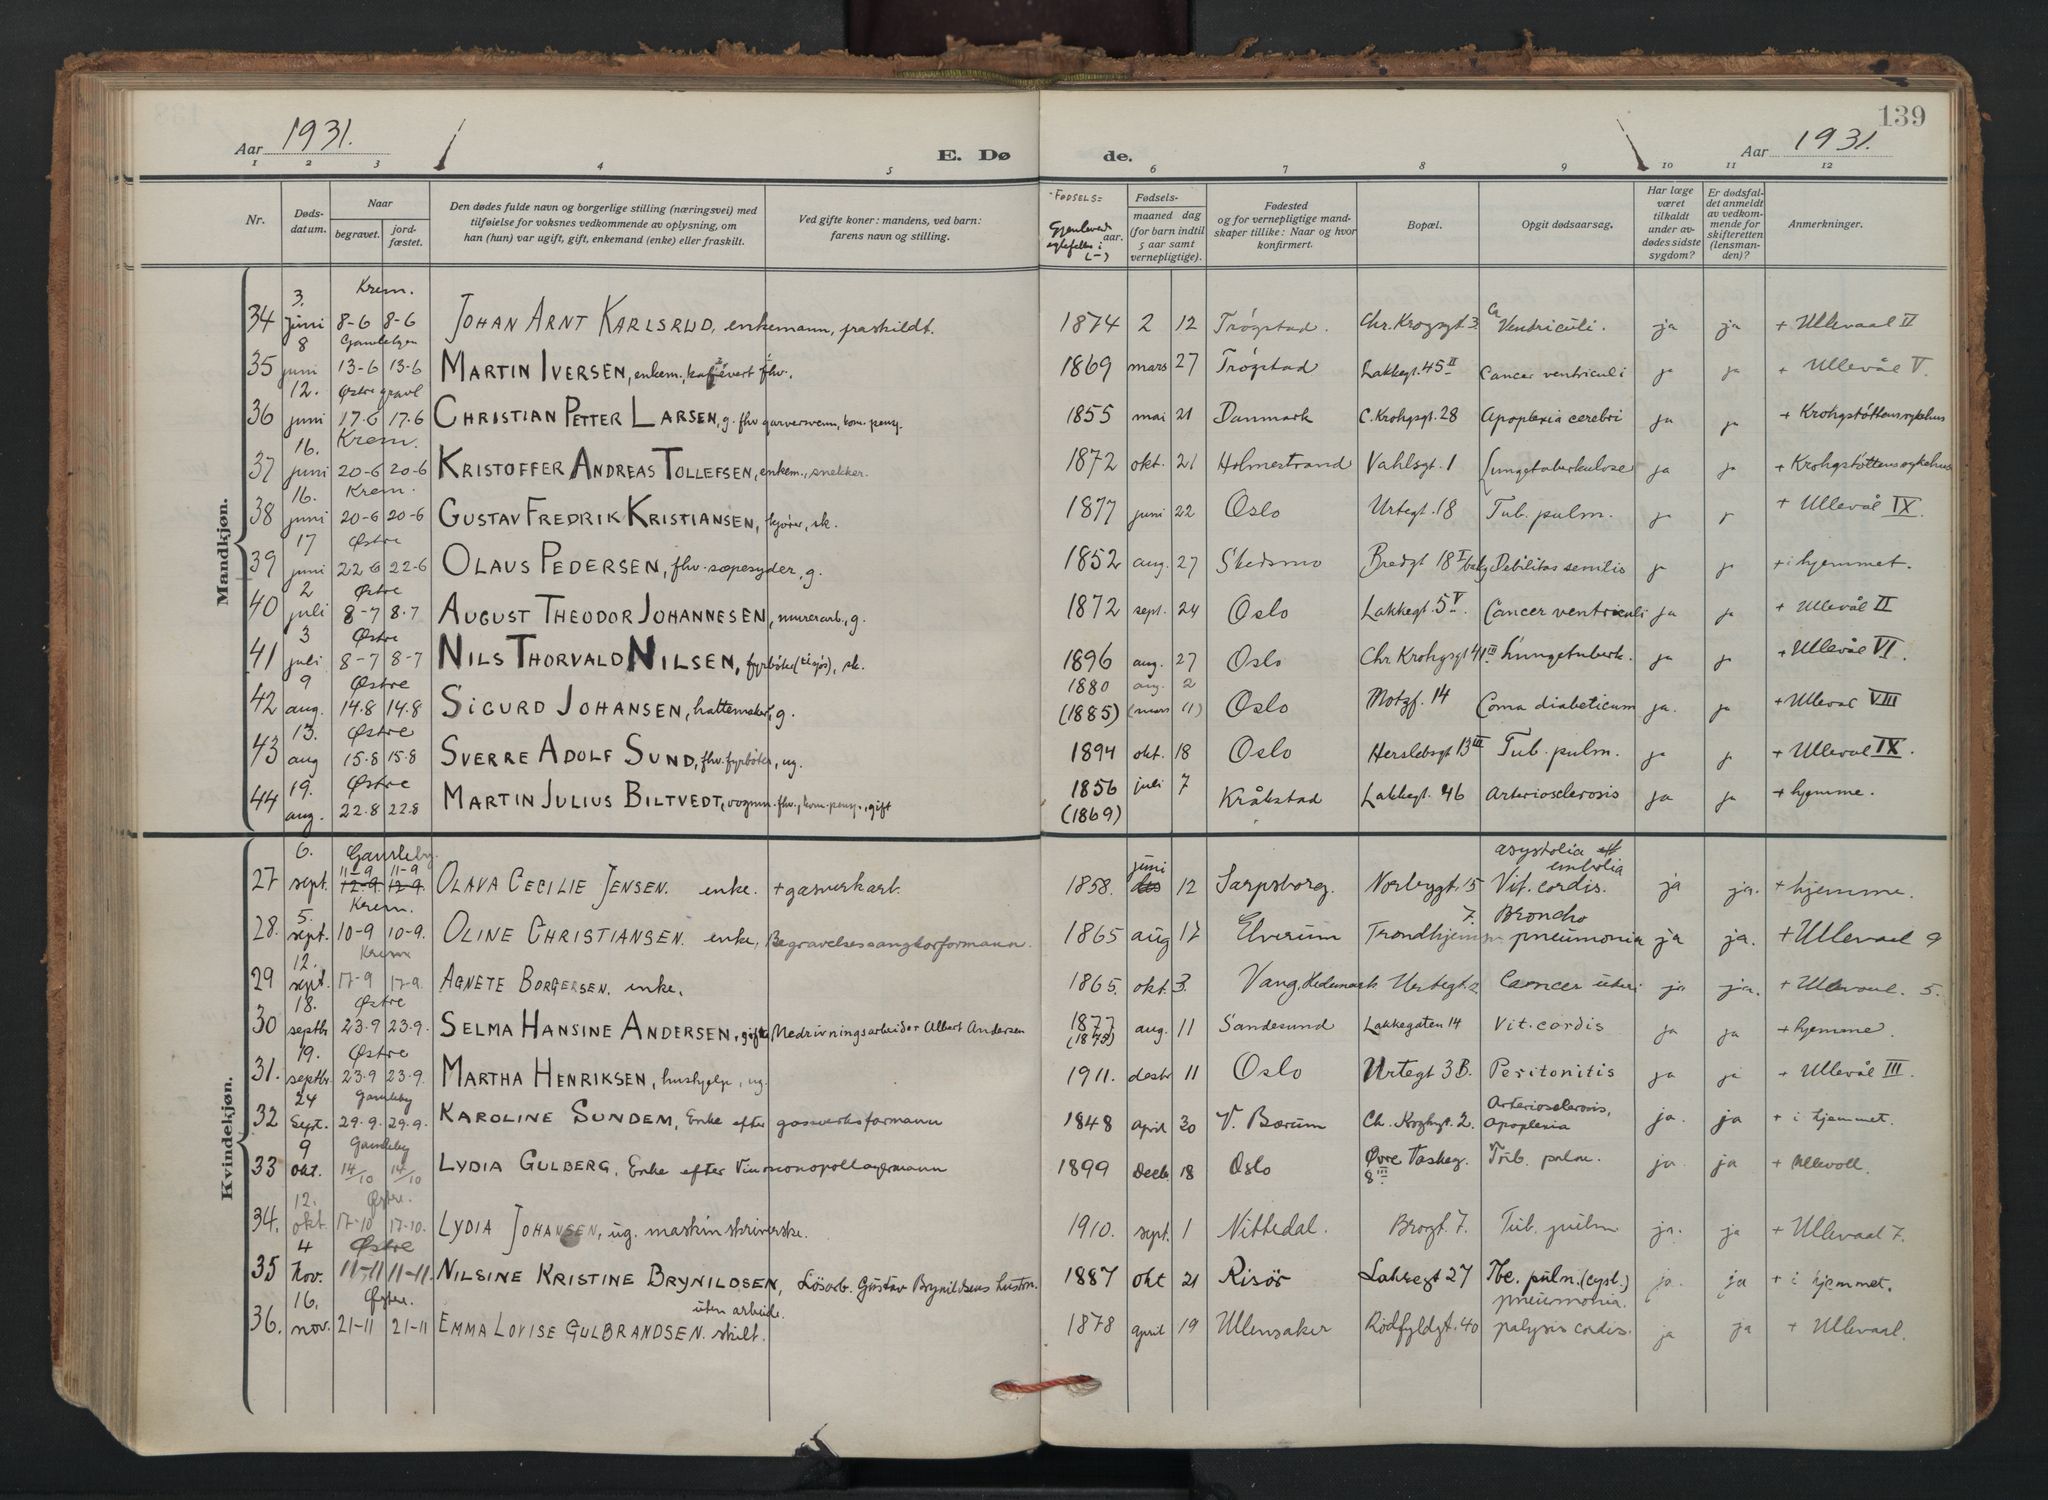 139
Aar 1931.
E. Dø
de.
Aar 1931.
1 2 3 4 5 6 7 8 9 10 11 12
Nr.
Døds-
datum.
Naar
begravet.
jord-
fæstet.
Den dødes fulde navn og borgerlige stilling (næringsvei) med
tilføielse for voksnes vedkommende av oplysning, om
han (hun) var ugift, gift, enkemand (enke) eller fraskilt.
Ved gifte koner: mandens, ved barn:
farens navn og stilling.
-FØDSELS=
Gjenlevend
aar.
(-)
Fødsels-
maaned dag
(for barn indtil
5 aar samt
vernepligtige).
Fødested
og for vernepligtige mand-
skaper tillike: Naar og hvor
konfirmert.
Bopæl.
Opgit dødsaarsag.
Har læge
været
tilkaldt
under av-
dødes sidste
sygdom?
Er dødsfal-
det anmeldt
av vedkom-
mende for
skifteretten
(lensman-
den)?
Anmerkninger.
Mandkjøn.
3. Krem.
34 juni 8-6 8-6 JOHAN ARNT KARLSRUD, enkemann, fraskildt. 1874 2 12 Trøgstad. Chr. Krogsgt 3. Ca Ventriculi. ja ja + Ullevaal II
8 Gamlebyen
35 juni 13-6 13-6 MARTIN IVERSEN, enkem., fhv. 1869 mars 27 Trøgstad Lakkegt. 45 II Cancer ventriculi ja ja + Ullevål V.
12. Østre gravl
36 juni 17-6 17-6 CHRISTIAN PETTER LARSEN, g. fhv garversvenn, kom. pensj. 1855 mai 21 Danmark C. Krohgsgt. 28 Apoplexia cerebri ja ja + Krohgstøttens sykehus
16. Krem.
37 juni 20-6 20-6 KRISTOFFER ANDREAS TOLLEFSEN, enkem., snekker. 1872 okt. 21 Holmestrand Vahlsgt. 1 Lungetuberkulose ja ja + Krohgstøttens sykehus
16. Krem.
38 juni 20-6 20-6 GUSTAV FREDRIK KRISTIANSEN, kjører, sk. 1877 juni 22 Oslo Urtegt. 18 Tub. pulm. ja ja + Ullevål IX.
17 Østre
39 juni 22-6 22-6 OLAUS PEDERSEN, fhv. sæpesyder, g. 1852 aug. 27 Skedsmo Bredgt 18 I Debilitas senilis ja ja + i hjemmet.
2 Østre
40 juli 8-7 8-7 AUGUST THEODOR JOHANNESEN, murerarb., g. 1872 sept. 24 Oslo Lakkegt. 5 V. Cancer ventriculi ja ja + Ullevål II
3 Østre
41 juli 8-7 8-7 NILS THORVALD NILSEN, fyrbøter (tilsjøs), sk. 1896 aug. 27 Oslo Chr. Krohgsgt 41 III Lungetuberk. ja ja + Ullevål VI.
9 Østre 1880 aug. 2
42 aug. 14.8 14.8 SIGURD JOHANSEN, hattemaker, g. (1885) (mars 11) Oslo Motzf. 14 Coma diabeticum ja. ja + Ullevål VIII
13. Østre
43 aug 15.8 15.8 SVERRE ADOLF SUND, fhv. fyrbøter, ug. 1894 okt. 18 Oslo Herslebsgt 13 III Tub. pulm. ja ja + Ullevål IX.
19. Østre
44 aug. 22.8 22.8 MARTIN JULIUS BILTVEDT, vognm. fhv., kom. pensj., gift 1856 (1869) juli 7 Kråkstad Lakkegt. 46 Arteriosclerosis ja ja + hjemme.
Kvindekjøn.
6. Gamleby. 11-9 11-9 juni asystolia embolia
27 sept. 12-9. 12-9. OLAVA CECILIE JENSEN. enke. + gasverkarb. 1858. des 12 Sarpsborg. Norbygt. 15 Vit. cordis. ja ja. + hjemme.
5. Krem. 7. Broncho
28. sept. 10-9 10-9. OLINE CHRISTIANSEN. enke, Begravelsessangkorformann. 1865 aug 17 Elverum Trondhjemsv pneumonia ja ja. + Ullevaal 9
12. Krem
29 sept. 17-9 17-9. AGNETE BORGERSEN. enke. 1865. okt. 3. Vang, Hedemark Urtegt. 2 Cancer uteri ja ja. + Ullevaal. 5.
18. Østre
30 septbr 23.9 23.9. SELMA HANSINE ANDERSEN, gift Nedrivningsarbeider Albert Andersen 1877 (1875) aug. 11 Sandesund Lakkegaten 14 Vit. cordis ja ja + hjemme.
19. Østre
31. septbr. 23.9 23.9. MARTHA HENRIKSEN, hushjelp, ug. 1911. desbr 11 Oslo Urtegt 3B. Peritonitis ja ja + Ullevål III.
24 Gamleby Arteriosclerosis,
32 Sept. 29.9. 29.9. KAROLINE SUNDEM, Enke efter gasverksformann 1848 april 30 V. Bærum Ch. Krohgt. 2. Apoplexia ja. ja + i hjemmet.
9 Gamleby
33 okt. 14/10 14/10 LYDIA GULBERG, Enke efter Vinmonopollagermann 1899 decb. 18 Oslo Øvre Vaskeg. 8 III Tub. pulm. ja. ja + Ullevoll.
12. Østre.
34. okt. 17-10 17-10. LYDIA JOHANSEN, ug. maskinskriverske. 1910. sept. 1 Nittedal. Brogt. 7. Tub. pulm ja. ja + Ullevaal 7.
4 Østre
35 Nov. 11-11 11-11. NILSINE KRISTINE BRYNILDSEN, Løsarb. Gustav Brynildsens hustru. 1887 okt 21 Risør Lakkegt 27 Tbc. pulm. (cyst.) ja. ja + i hjemmet.
16. Østre. uten arbeide. pneumonia.
36. nov. 21-11 21-11 EMMA LOVISE GULBRANDSEN. skilt. 1878 april 19 Ullensaker Rødfyldgt. 40 palysis cordis. ja ja + Ullevaal.